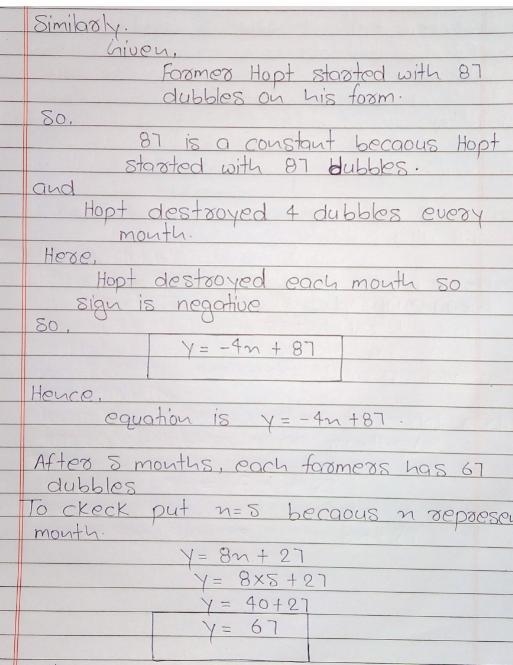 Similarly.
Given,
Farmer Hapt started with 87
dubbles on his farm.
So,
87 is a constant becaous Hapt
started with 87 dubbles.
and
Hapt destroyed 4 dubbles every
month.
Here,
Hapt destroyed each month so
sign is negative
So,
y = -4x + 87
Hence,
equation is y = -4x +87.
After 5 months, each farmers has 67
dubbles
To ckeck put x=5 becaous x represe
month.
y = 8x + 27
y = 8×5 + 27
y = 40+27
y = 67